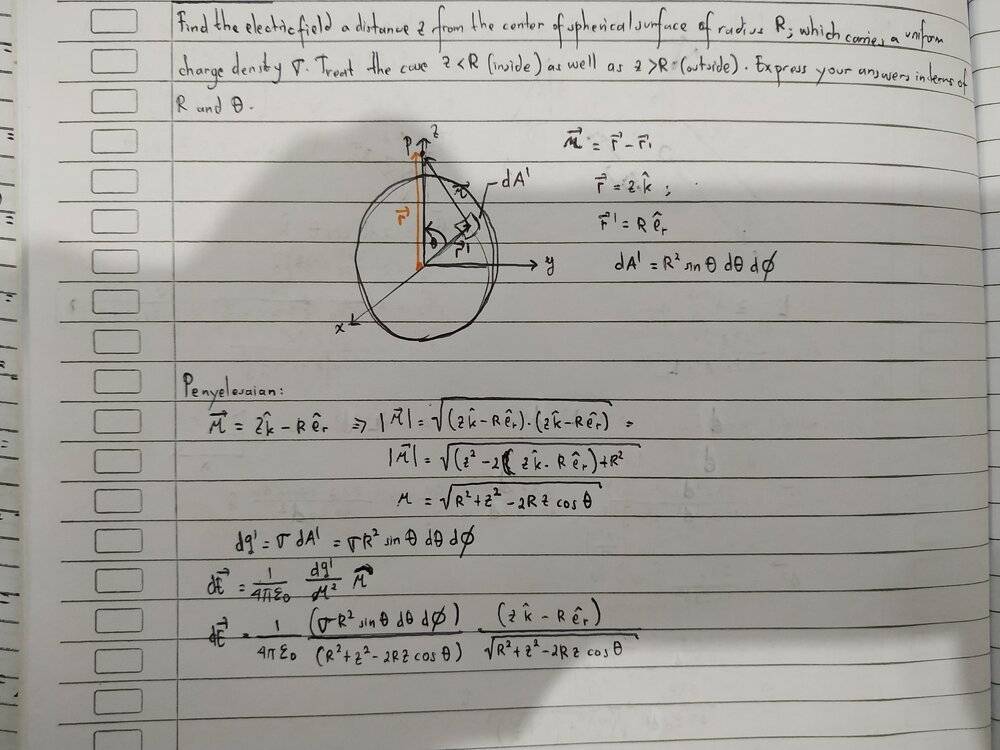 Find the electric field a distance z from the center of spherical surface of radius R; which carries a uniform
charge density σ. Treat the case z < R (inside) as well as z > R (outside). Express your answers in terms of
R and θ.
P z
𝓇⃗ = r⃗ - r⃗'
𝓇⃗ dA'
r⃗ = z k̂ ;
r⃗
θ r⃗'
r⃗' = R ê_r
y
dA' = R² sin θ dθ dϕ
x
Penyelesaian:
𝓇⃗ = zk̂ - R ê_r ⇒ |𝓇⃗| = √((zk̂ - R ê_r)·(zk̂ - Rê_r)) =
|𝓇⃗| = √((z² - 2( zk̂ · R ê_r) + R²
𝓇 = √(R² + z² - 2Rz cos θ)
dq' = σ dA' = σR² sin θ dθ dϕ
dE⃗ = 1/4πε₀ dq'/𝓇² 𝓇̂
dE⃗ = 1/4πε₀ (σR² sin θ dθ dϕ)/(R² + z² - 2Rz cos θ) · (z k̂ - R ê_r)/√(R² + z² - 2Rz cos θ)